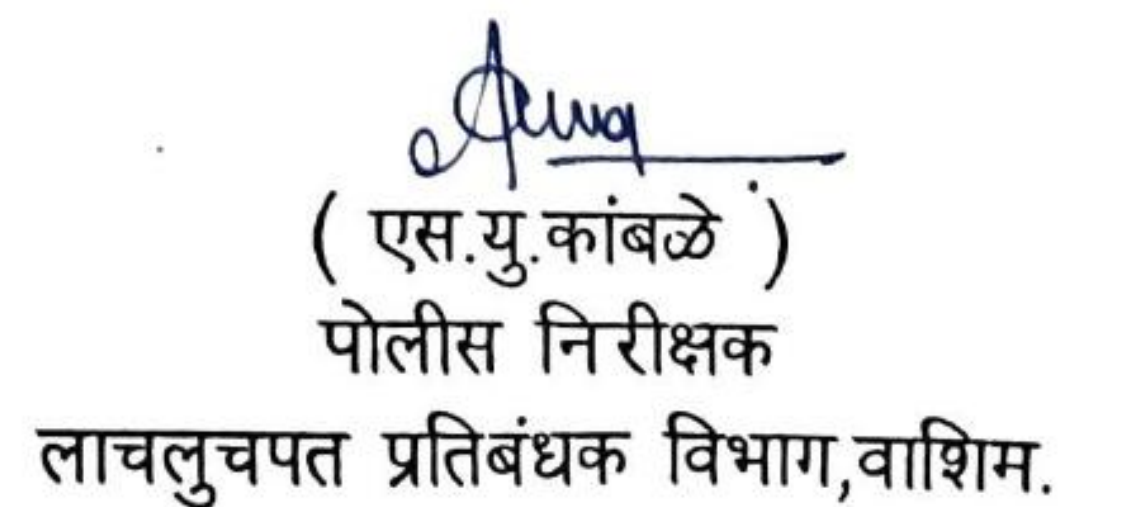 ( एस.यु.कांबळे )
पोलीस निरीक्षक
लाचलुचपत प्रतिबंधक विभाग,वाशिम.